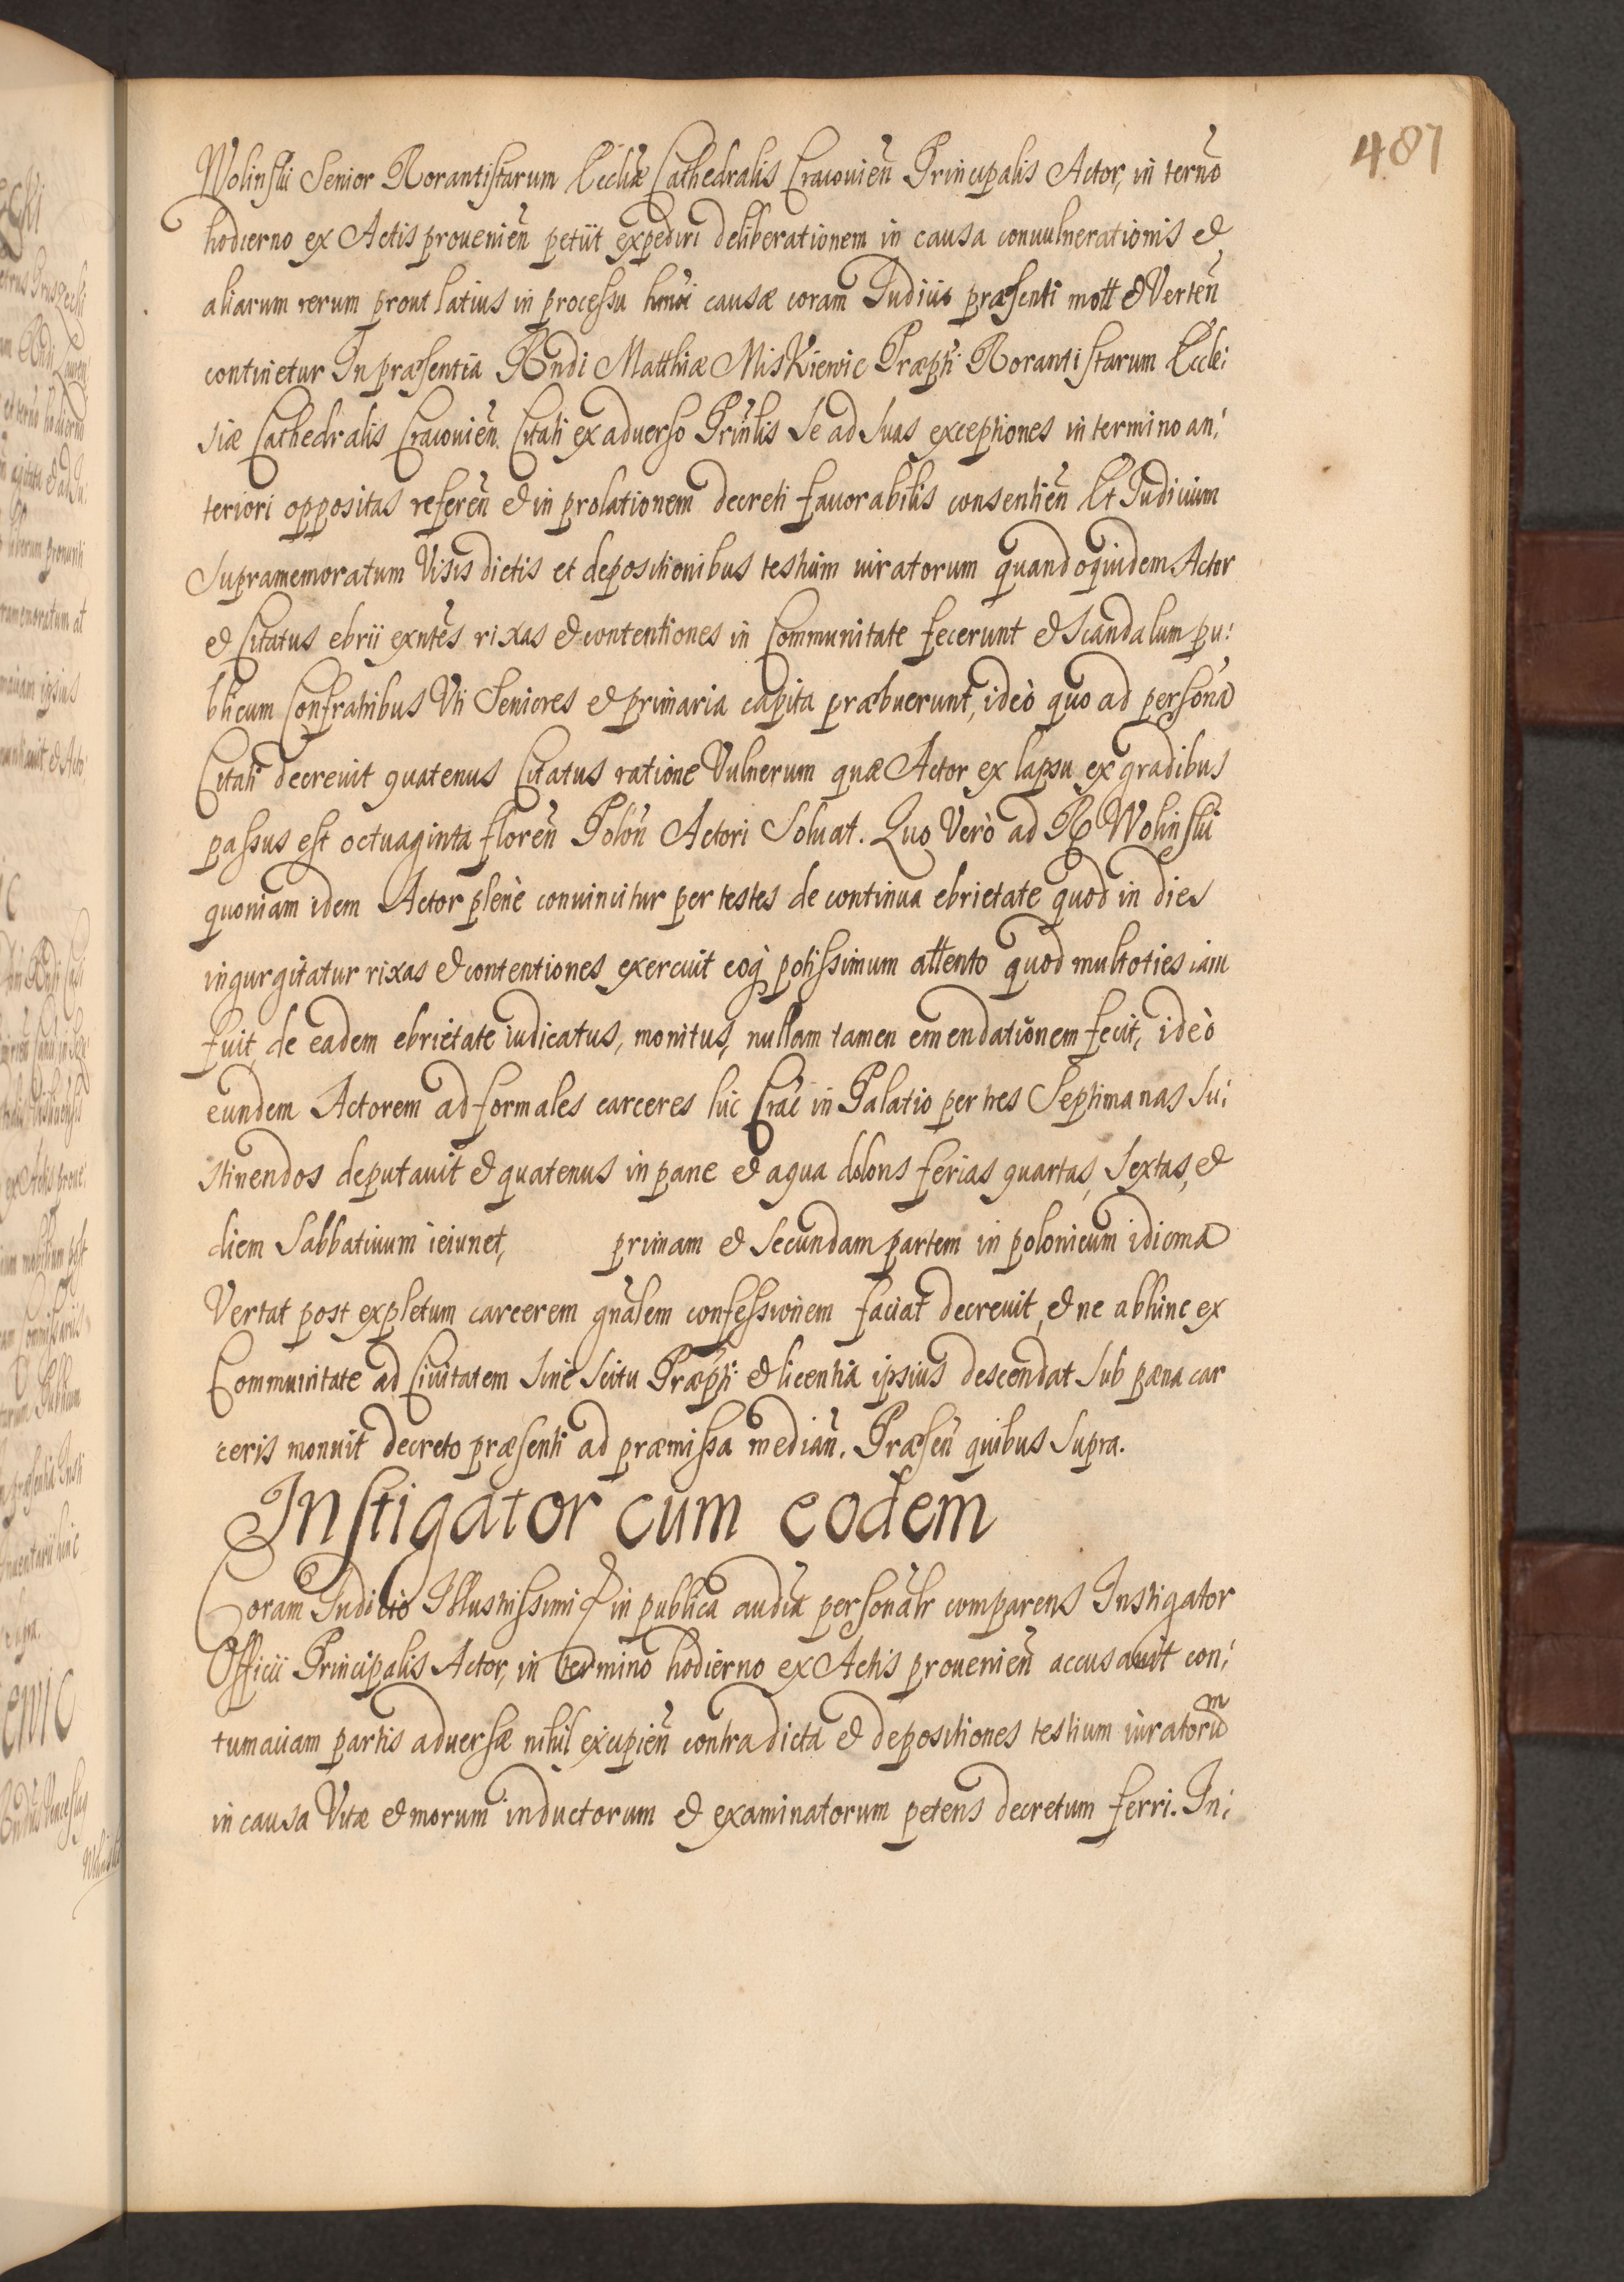 487
Wolinski Senior Rorantistarum Eccliæ Cathedralis Cracovien̄ Principalis Actor, in terñо
hodierno ex Actis prouenien̄ petiit expediri deliberationem in causa conuulnerationis et
aliarum rerum prout latius in processu hui̅oi causæ coram Iudicio præsenti mott et Verten̄
continetur In præsentia Rndi Matthiæ Miskiewic Præpti Rorantistarum Eccle:
siæ Cathedralis Cracouien̄. Citati ex aduerso Prin̄lis se ad suas exceptiones in termino an:
teriori oppositas referen̄ et in prolationem decreti fauorabilis consentien̄ Et Iudicium
supramemoratum Visis dictis et depositionibus testium iuratorum quandoquidem Actor
et Citatus ebrii exn̄tes rixas et contentiones in Communitate fecerunt et scandalum pu:
blicum Confratribus Vti Seniores et primaria capita præbuerunt, ideò quo ad personā
Citati decreuit quatenus Citatus ratione Vulnerum quæ Actor ex lapsu ex gradibus
passus est octuaginta floren̄ Polon̄ Actori Soluat. Quo Verò ad R Wolinski
quoniam idem Actor plenè conuincitur per testes de continua ebrietate quod in dies
ingurgitatur rixas et contentiones exercuit eoq̨ potissimum attento quod multoties iam
fuit de eadem ebrietate iudicatus, monitus, nullam tamen emendationem fecit, ideò
eundem Actorem ad formales carceres hic Crac̄ in Palatio per tres Septimanas su:
stinendos deputauit et quatenus in pane et aqua doloris ferias quartas, sextas, et
diem Sabbatiuum ieiunet, primam et secundam partem in polonicum idioma
Vertat post expletum carcerem gn̄alem confessionem faciat decreuit, et ne abhinc ex
Communitate ad Ciuitatem sine scitu Præpti et licentia ipsius descendat sub pœna car
ceris monuit decreto præsenti ad præmissa median̄. Præsen̄ quibus supra.
Instigator cum eodem
Coram Iudicio Illustrissimi in publica audi̅a personalr̄ comparens Instigator
Officii Principalis Actor, in termino hodierno ex Actis prouenien̄ accusauit con:
tumaciam partis aduersæ nihil excipien̄ contra dicta et depositiones testium iuratorum
in causa Vitæ et morum inductorum et examinatorum petens decretum ferri. In: